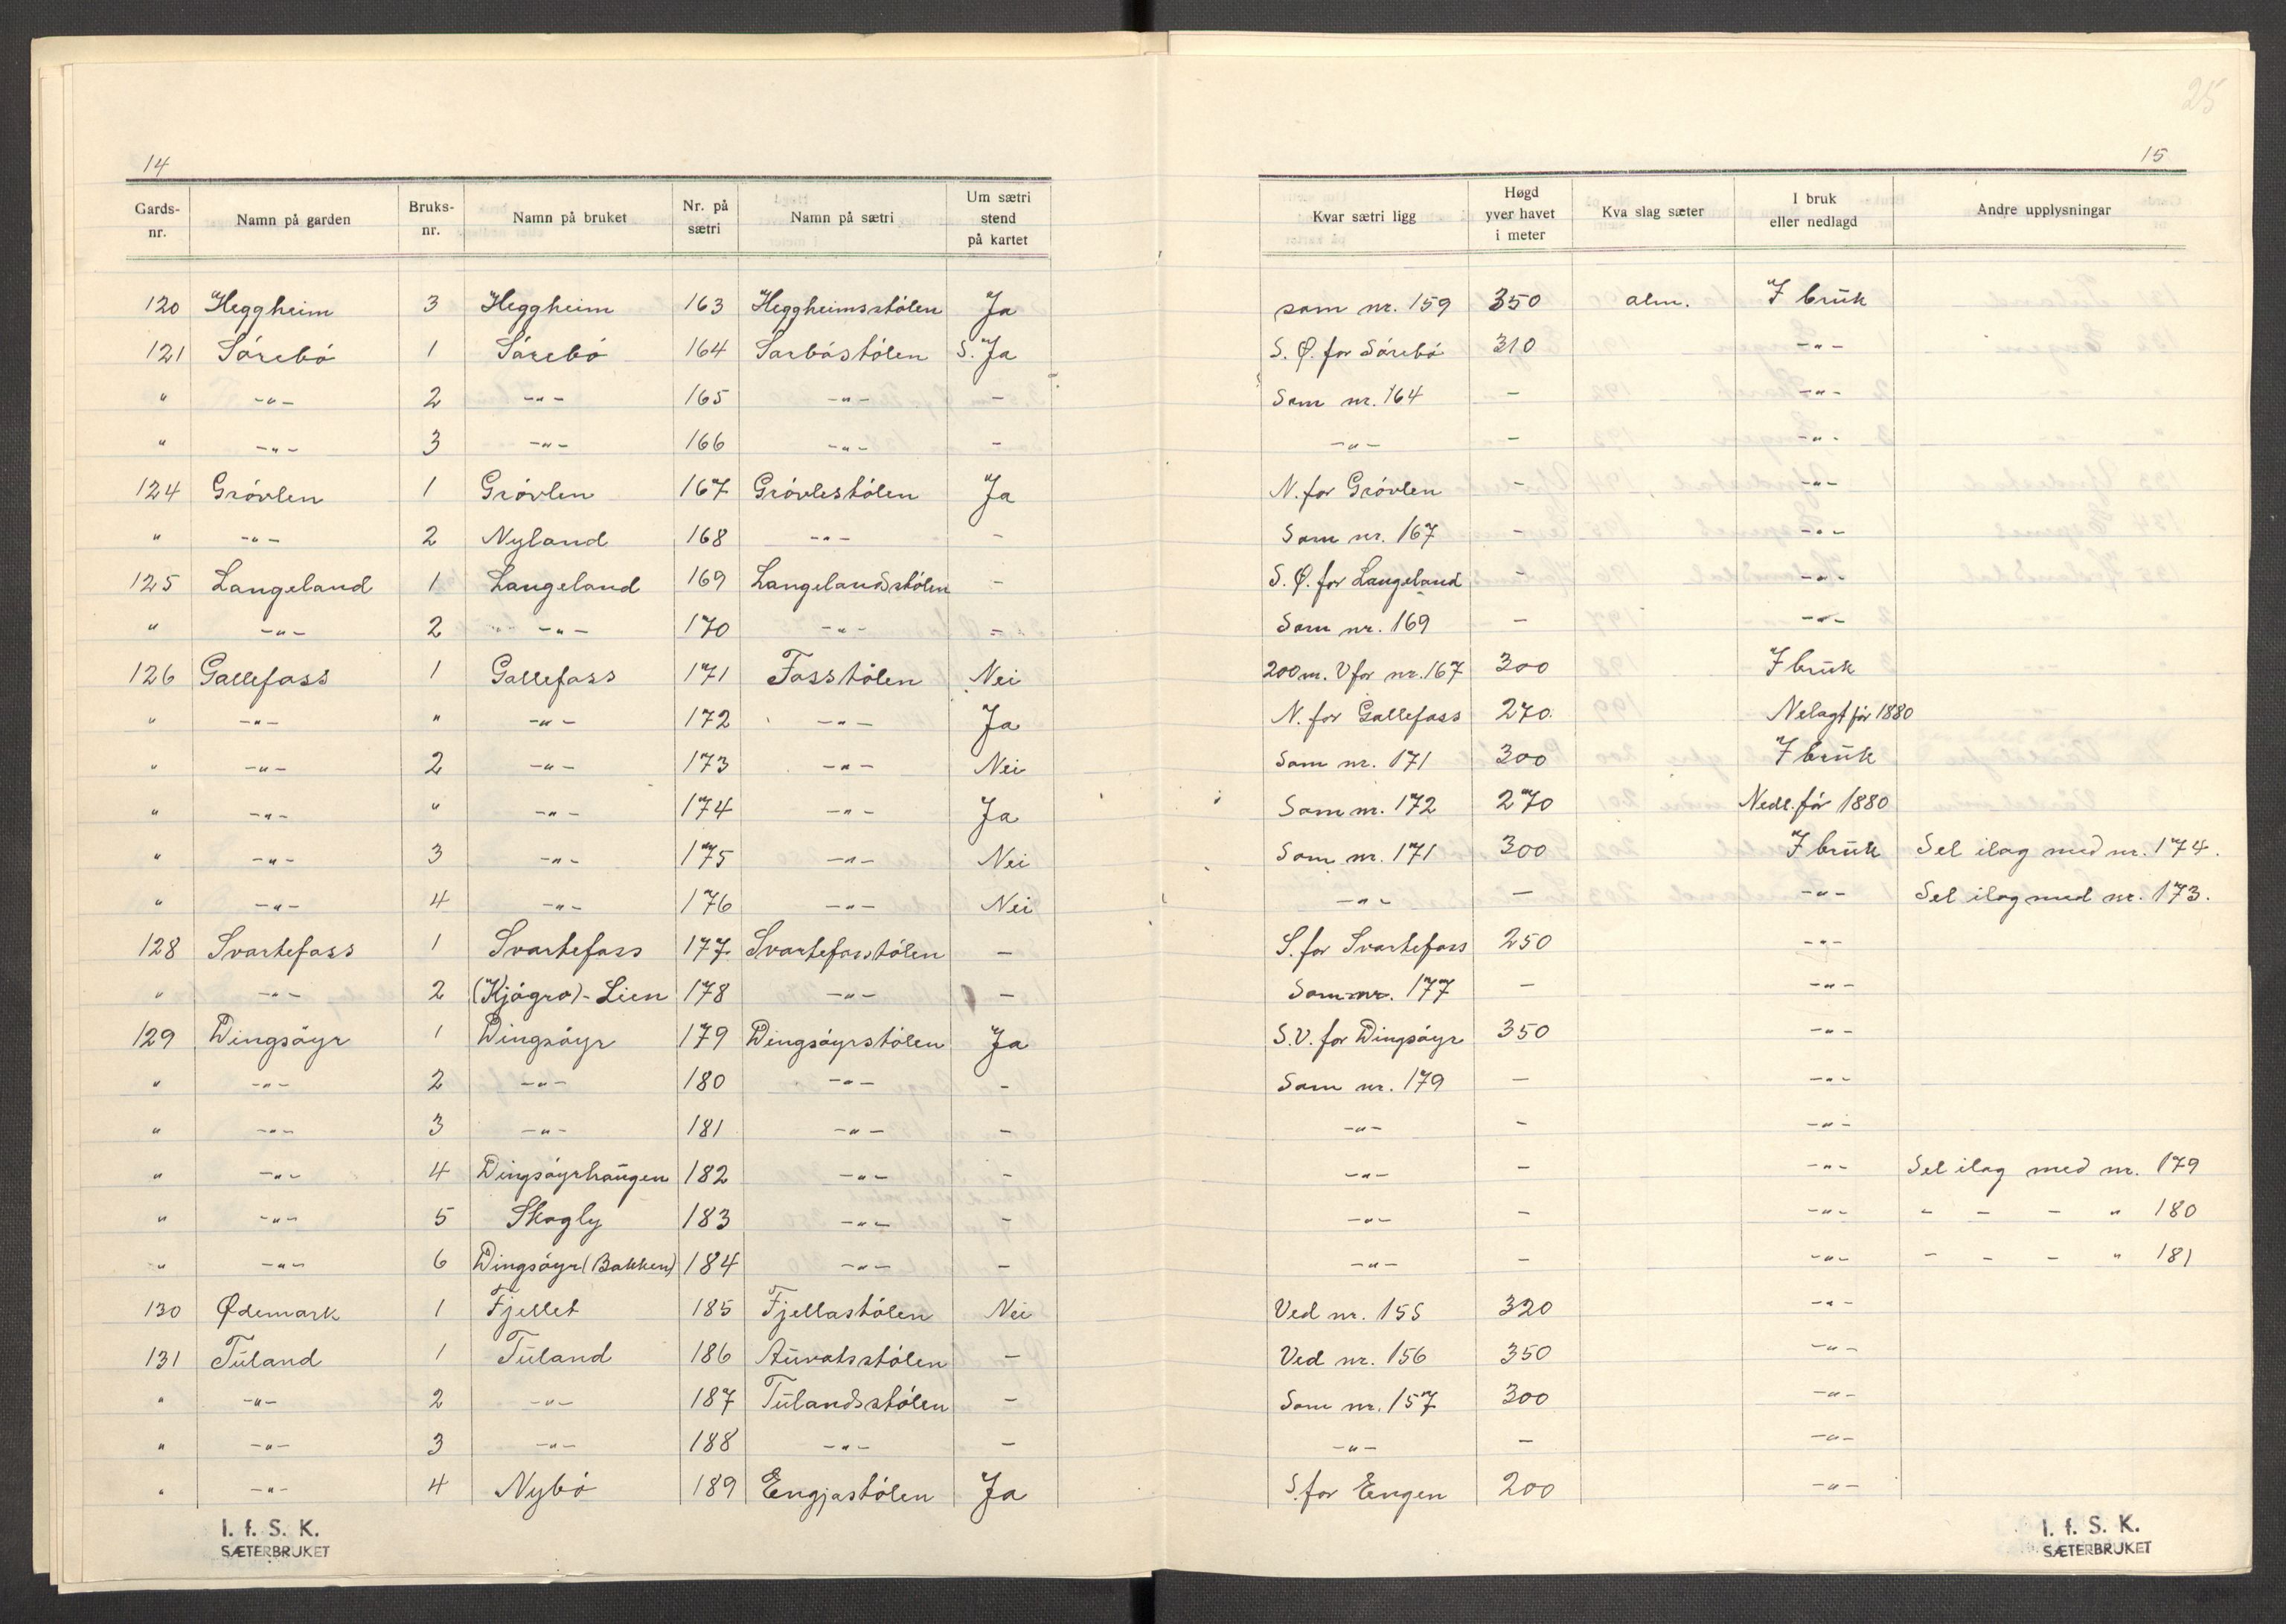 25
14
15
Gards-nr. | Namn på garden | Bruks-nr. | Namn på bruket | Nr. på sætri | Namn på sætri | Um sætri stend på kartet | Kvar sætri ligg | Høgd yver havet i meter | Kva slag sæter | I bruk eller nedlagd | Andre upplysningar
120 | Heggheim | 3 | Heggheim | 163 | Heggheimsstölen | Ja | som nr. 159 | 350 | alm. | I brūk
121 | Sörebö | 1 | Sörebö | 164 | Sarböstölen | S. Ja | S. Ø. for Sörebö | 310 | | -"-
" | -"- | 2 | -"- | 165 | -"- | - | Som nr. 164 | - | | -"-
" | -"- | 3 | -"- | 166 | -"- | - | -"- | - | | -"-
124 | Grövlen | 1 | Grövlen | 167 | Grövlestölen | Ja | N. for Grövlen | - | | -"-
" | -"- | 2 | Nyland | 168 | -"- | - | Som nr. 167 | - | | -"-
125 | Langeland | 1 | Langeland | 169 | Langelandsstölen | - | S. Ø. for Langeland | - | | -"-
" | -"- | 2 | -"- | 170 | -"- | - | Som nr. 169 | - | | -"-
126 | Gallefoss | 1 | Gallefoss | 171 | Fosstölen | Nei | 200 m. V for nr. 167 | 300 | | I brūk
" | -"- | " | -"- | 172 | -"- | Ja | N. for Gallefoss | 270. | | Nelagt för 1880
" | -"- | 2 | -"- | 173 | -"- | Nei | Som nr. 171 | 300 | | I brūk
" | -"- | " | -"- | 174 | -"- | Ja | Som nr. 172 | 270 | | Nedl. för 1880
" | -"- | 3 | -"- | 175 | -"- | Nei | Som nr. 171 | 300 | | I brūk | Sel ilag med nr. 174.
" | -"- | 4 | -"- | 176 | -"- | Nei | -"- | - | | -"- | Sel ilag med nr. 173.
128 | Svartefoss | 1 | Svartefoss | 177 | Svartefosstölen | - | S. for Svartefoss | 250 | | -"-
" | -"- | 2 | (Kjögro)-Lien | 178 | -"- | - | Som nr. 177 | - | | -"-
129 | Dingsöyr | 1 | Dingsöyr | 179 | Dingsöyrstölen | Ja | S.V. for Dingsöyr | 350 | | -"-
" | -"- | 2 | -"- | 180 | -"- | - | Som nr. 179 | - | | -"-
" | -"- | 3 | -"- | 181 | -"- | - | -"- | - | | -"-
" | -"- | 4 | Dingsöyrhaūgen | 182 | -"- | - | -"- | - | | -"- | Sel ilag med nr. 179
" | -"- | 5 | Skogly | 183 | -"- | - | -"- | - | | -"- | - - - " 180
" | -"- | 6 | Dingsöyr (Bakken) | 184 | -"- | - | -"- | - | | -"- | - - - " 181
130 | Ødemark | 1 | Fjellet | 185 | Fjellastölen | Nei | Ved nr. 155 | 320 | | -"-
131 | Tūland | 1 | Tūland | 186 | Aūvatsstölen | - | Ved nr. 156 | 350 | | -"-
" | -"- | 2 | -"- | 187 | Tūlandsstölen | - | Som nr. 157 | 300 | | -"-
" | -"- | 3 | -"- | 188 | -"- | - | -"- | - | | -"-
" | -"- | 4 | Nybö | 189 | Engjastölen | Ja | S. for Engen | 200 | | -"-
I. f. S. K.
SÆTERBRUKET
I. f. S. K.
SÆTERBRUKET